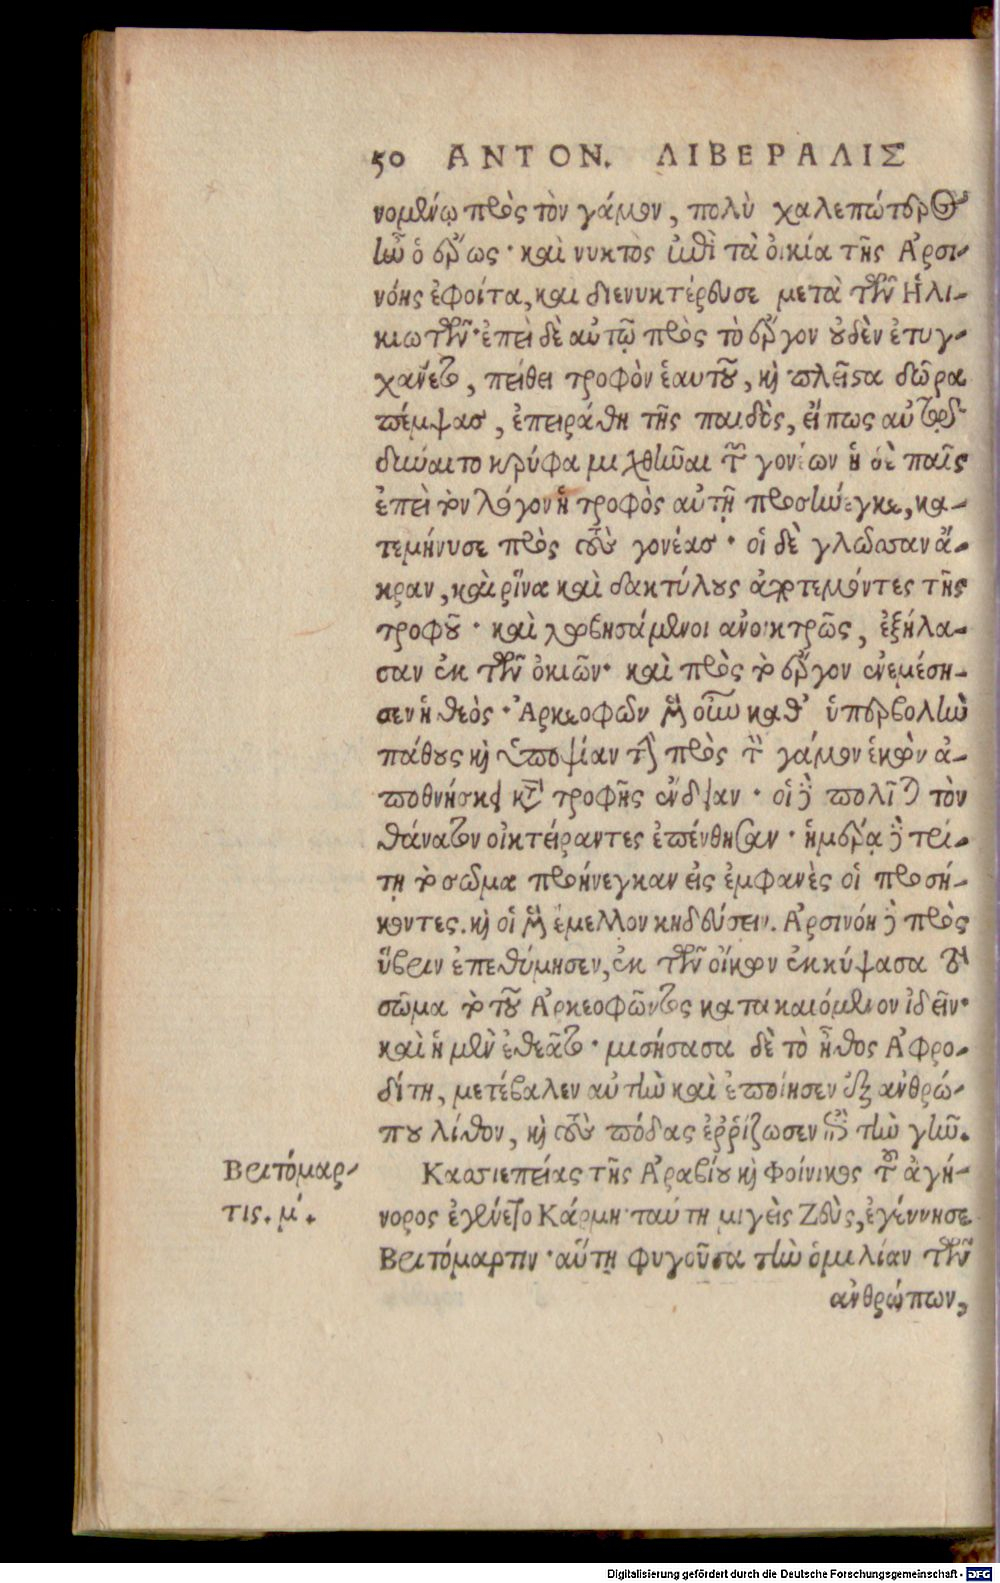 50 ΑΝΤΟΝ. ΛΙΒΕΡΑΛΙΣ
νομένῳ πρὸς τὸν γάμον, πολὺ χαλεπώτερος
ἦν ὁ ἔρως· καὶ νυκτὸς ἐπὶ τὰ οἰκία τῆς Ἀρσι-
νόης ἐφοίτα, και διενυκτέρευσε μετὰ τῶν Ἡλι-
κιωτῶν· ἐπεὶ δὲ αὐτῷ πρὸς τὸ ἔργον οὐδὲν ἐτυγ-
χάνετο, πείθει τροφὸν ἑαυτοῦ, καὶ πλεῖστα δῶρα
πέμψας, ἐπειράθη τῆς παιδὸς, εἴπως αὐτῷ
δύναιτο κρύφα μιχθῆναι τῶν γονέων ἡ δὲ παῖς
ἐπεὶ τὸν λόγον ἡ τροφὸς αὐτῇ προσήνεγκε, κα-
τεμήνυσε πρὸς τοὺς γονέας· οἱ δὲ γλῶσσαν ἄ-
κραν, καὶ ῥῖνα καὶ δακτύλους ἀποτεμόντες τῆς
τροφοῦ· καὶ λωβησάμενοι ἀνοικτρῶς, ἐξήλα-
σαν ἐκ τῶν οἰκιῶν· καὶ πρὸς τὸ ἔργον ἐνεμέση-
σεν ἡ θεὸς· Ἀρκεοφῶν μὲν οὖν καθ' ὑπερβολὴν
πάθους καὶ ὑποψίαν τὴν πρὸς τὸν γάμον ἑκὼν ἀ-
ποθνήσκει κατὰ τροφῆς ἔνδειαν· οἱ δὲ πολῖται τὸν
θάνατον οἰκτείραντες ἐπένθησαν· ἡμέρᾳ δὲ τρί-
τῃ τὸ σῶμα προήνεγκαν εἰς ἐμφανὲς οἱ προσή-
κοντες. καὶ οἱ μὲν ἔμελλον κηδεύσειν. Ἀρσινόη δὲ πρὸς
ὕβριν ἐπεθύμησεν, ἐκ τῶν οἴκων ἐκκύψασα τὸ
σῶμα τὸ τοῦ Ἀρκεοφῶντος κατακαιόμενον ἰδεῖν·
καὶ ἡ μὲν ἐθεᾶτο· μισήσασα δὲ τὸ ἦθος Ἀφρο-
δίτη, μετέβαλεν αὐτὴν καὶ ἐποίησεν ἐξ ἀνθρώ-
που λίθον, καὶ τοὺς πόδας ἐῤῥίζωσεν ἐπὶ τὴν γῆν.
Βριτόμαρ-
τις. μ.
Κασσιεπείας τῆς Ἀραβίου καὶ Φοίνικος τοῦ ἀγή-
νορος ἐγένετο Κάρμη· ταύτῃ μιγεὶς Ζεὺς, ἐγέννησε
Βριτόμαρτιν· αὕτη φυγοῦσα τὴν ὁμιλίαν τῶν
ἀνθρώπων,
Digitalisierung gefördert durch die Deutsche Forschungsgemeinschaft - DFG